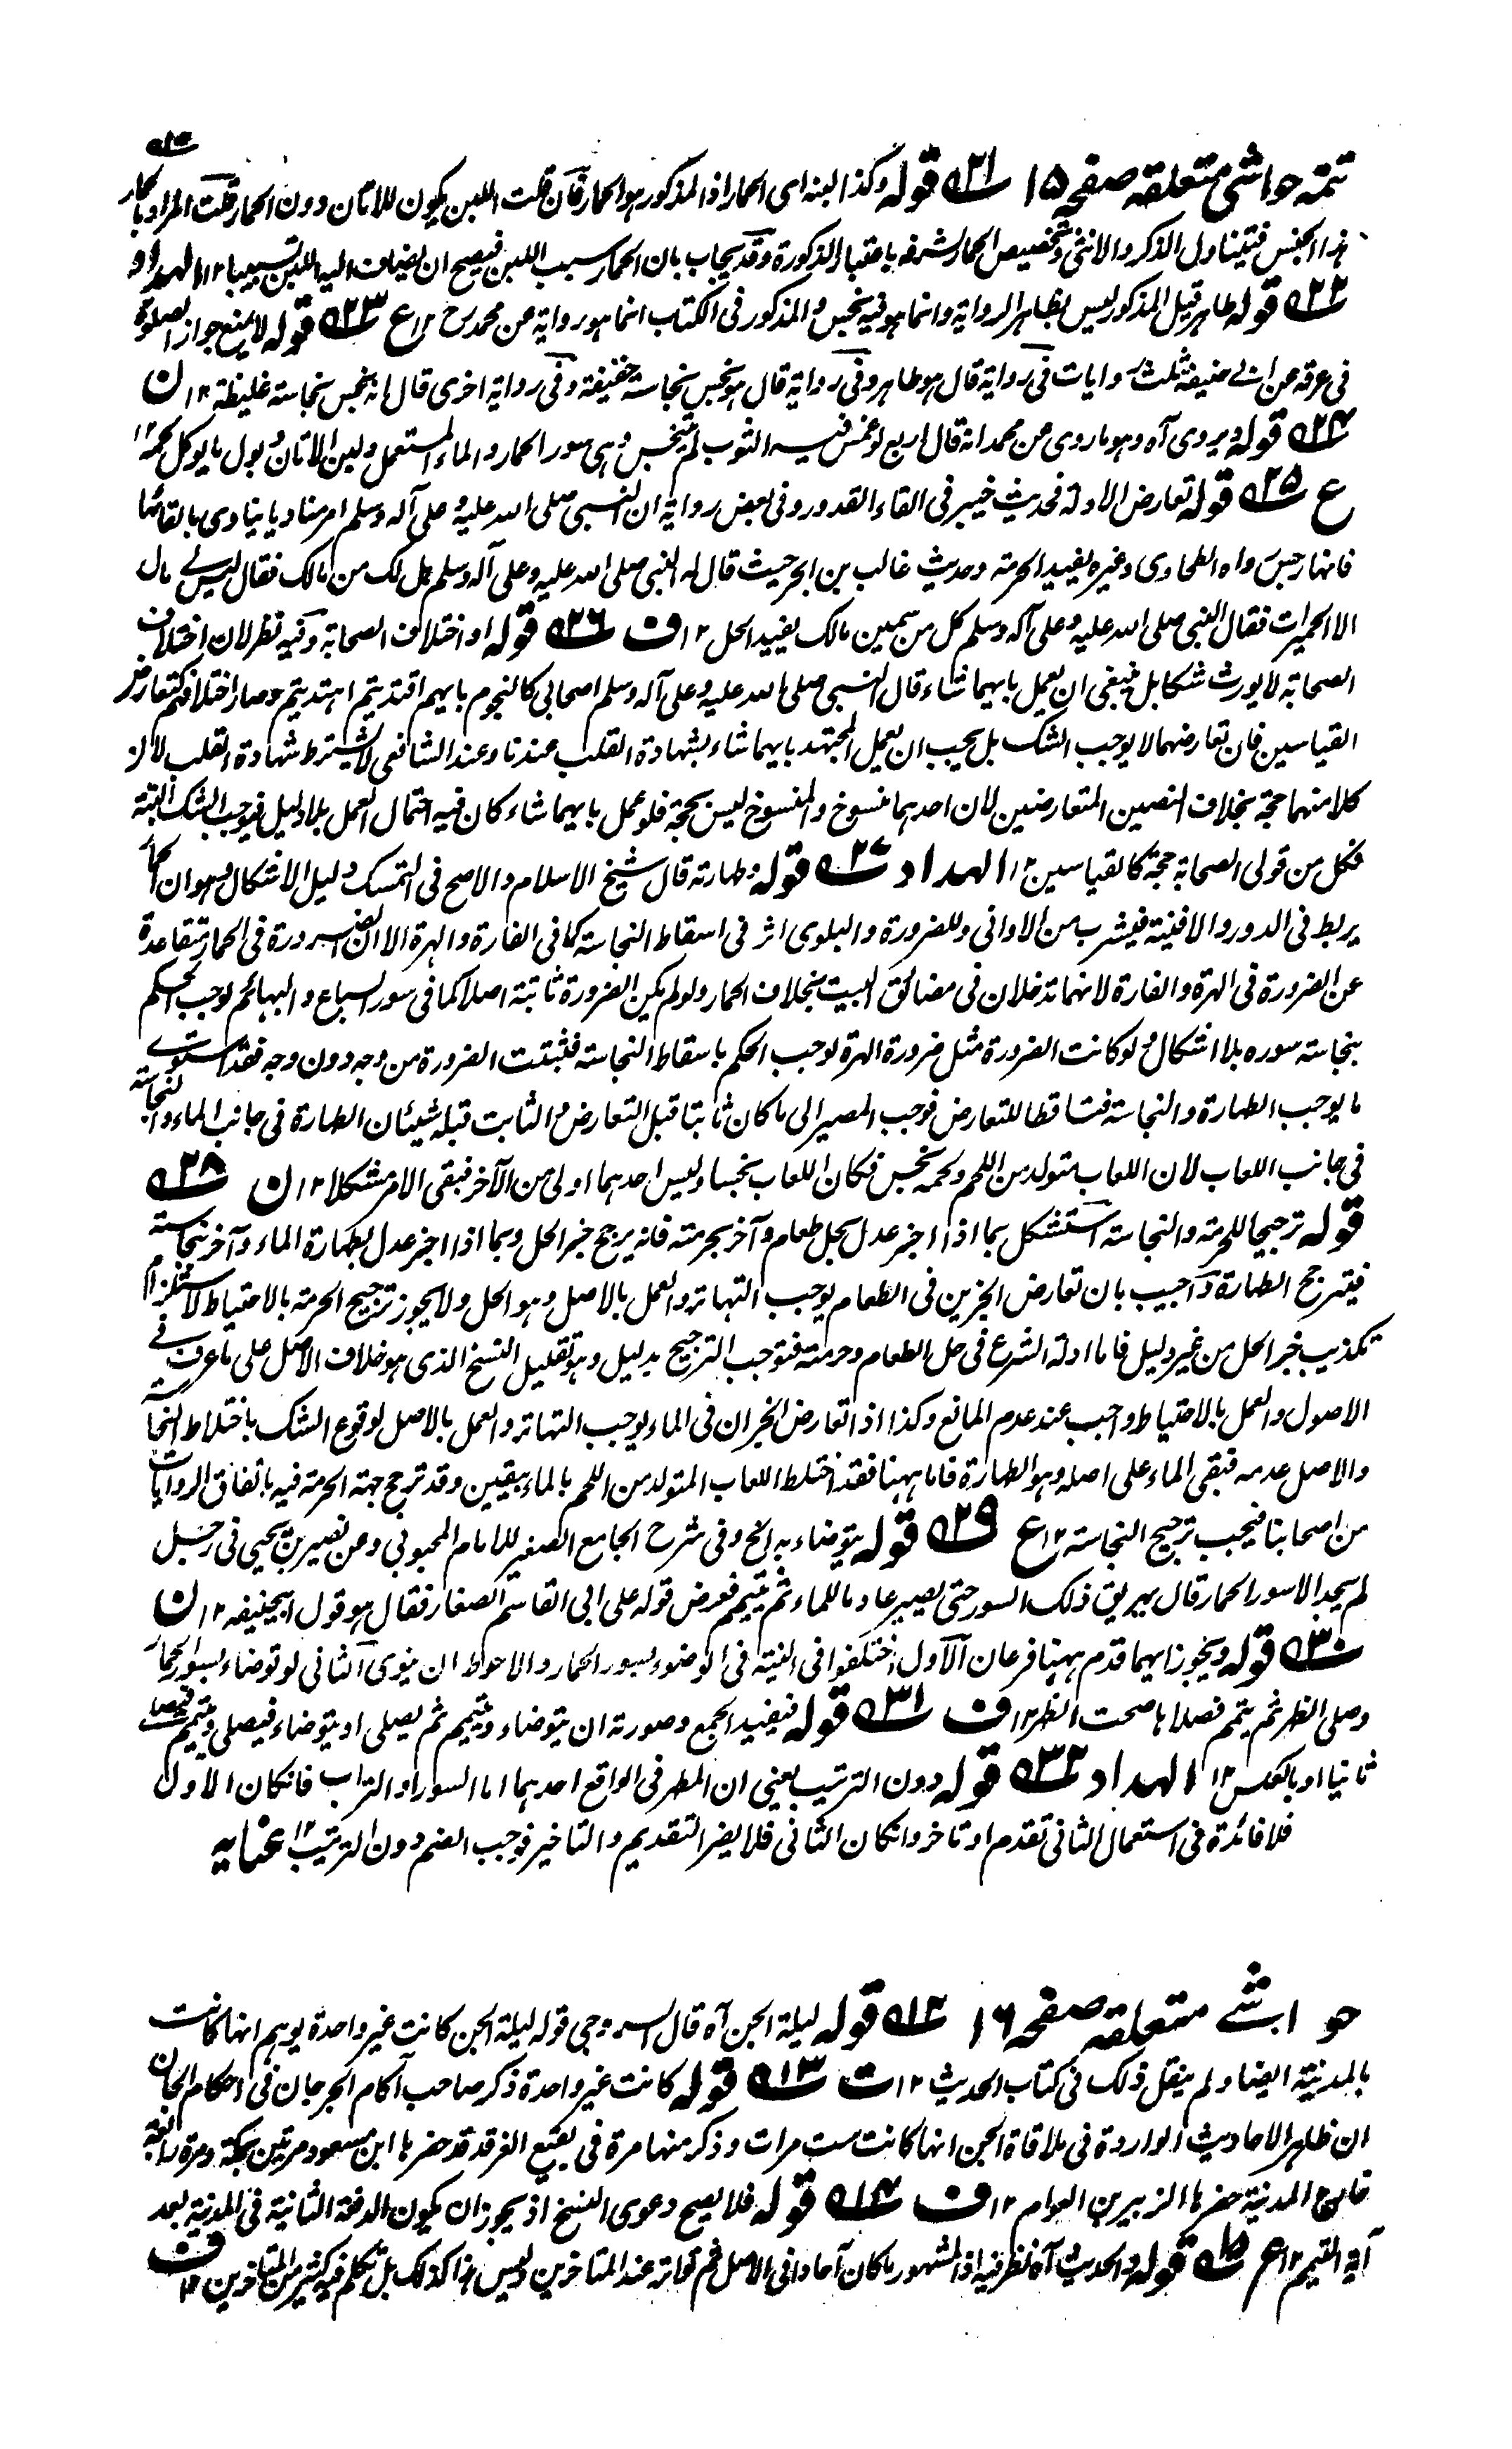 تتمہ حواشی متعلقہ صفحہ ۱۵ ۲۱ قوله وكذا لبنه اى الحمار اذ المذكور هو الحمار فان قلت اللبن يكون للاتان دون الحمار قلت المراد بالحمار
هذا الجنس فيتناول الذكر والانثى وتخصيص الحمار لشرفه باعتبار الذكورة وقد يجاب بان الحمار سبب اللبن فيصح ان يضاف اليه اللبن تسبيبا ۱۲ الهداد
۲۲ قوله طاهر قيل المذكور ليس بظاهر الرواية وانما هو فيه نجس والمذكور فى الكتاب انما هو رواية عن محمد رح ۱۲ ع ۲۳ قوله لا يمنع جواز الصلوة
فى عرقه عن ابى حنيفة ثلث روايات فى رواية قال هو طاهر وفى رواية قال هو نجس نجاسة خفيفة وفى رواية اخرى قال انه نجس نجاسة غليظة ۱۲ ن
۲۴ قوله ويروى آه وهو ما روى عن محمد انه قال اربع لو غمس فيه الثوب لم يتنجس وهى سور الحمار والماء المستعمل ولبن الاتان وبول ما يوكل لحمه ۱۲
ع ۲۵ قوله تعارض الادلة فحديث خيبر فى القاء القدور وفى بعض رواية ان النبى صلى الله عليه وعلى آله وسلم امر مناديا ينادى بالقائها
فانها رجس رواه الطحاوى وغيره يفيد الحرمة وحديث غالب بن ابجر حيث قال له النبى صلى الله عليه وعلى آله وسلم هل لك من مالك فقال ليس لى مال
الا الحميرات فقال النبى صلى الله عليه وعلى آله وسلم كل من سمين مالك يفيد الحل ۱۲ ف ۲۶ قوله او اختلاف الصحابة وفيه نظر لان اختلاف
الصحابة لا يورث شكا بل ينبغى ان يعمل بايهما شاء قال النبى صلى الله عليه وعلى آله وسلم اصحابى كالنجوم بايهم اقتديتم اهتديتم وصار اختلافهم كتعارض
القياسين فان تعارضهما لا يوجب الشك بل يجب ان يعمل المجتهد بايهما شاء بشهادة القلب عندنا وعند الشافعى لا يشترط شهادة القلب لان
كلا منهما حجة بخلاف النصين المتعارضين لان احدهما منسوخ والمنسوخ ليس بحجة فلو عمل بايهما شاء كان فيه احتمال العمل بلا دليل فيوجب الشك البتة
فكل من قولى الصحابة حجة كالقياسين ۱۲ الهداد ۲۷ قوله وطهارته قال شيخ الاسلام والاصح فى التمسك دليل الاشكال وهو ان الحمار
يربط فى الدور والافنية فيشرب من الاوانى وللضرورة والبلوى اثر فى اسقاط النجاسة كما فى الفارة والهرة الا ان الضرورة فى الحمار متقاعدة
عن الضرورة فى الهرة والفارة لانهما تدخلان فى مضائق البيت بخلاف الحمار ولو لم يكن الضرورة ثابتة اصلا كما فى سور السباع والبهائم لوجب الحكم
بنجاسة سوره بلا اشكال ولو كانت الضرورة مثل ضرورة الهرة لوجب الحكم باسقاط النجاسة فثبتت الضرورة من وجه دون وجه فقد استوى
ما يوجب الطهارة والنجاسة فتساقطا للتعارض فوجب المصير الى ما كان ثابتا قبل التعارض والثابت قبله شيئان الطهارة فى جانب الماء والنجاسة
فى جانب اللعاب لان اللعاب متولد من اللحم ولحمه نجس فكان اللعاب نجسا وليس احدهما اولى من الآخر فبقى الامر مشكلا ۱۲ ن ۲۸
قوله ترجيحا للحرمة والنجاسة استشكل بما اذا اخبر عدل بحل طعام وآخر بحرمته فانه يرجح خبر الحل وبما اذا اخبر عدل بطهارة الماء وآخر بنجاسته
فيترجح الطهارة واجيب بان تعارض الخبرين فى الطعام يوجب التهاتر والعمل بالاصل وهو الحل ولا يجوز ترجيح الحرمة بالاحتياط لاستلزام
تكذيب خبر الحل من غير دليل فاما ادلة الشرع فى حل الطعام وحرمته فتوجب الترجيح بدليل وهو تقليل النسخ الذى هو خلاف الاصل على ما عرف فى
الاصول والعمل بالاحتياط واجب عند عدم المانع وكذا اذا تعارض الخبران فى الماء يوجب التهاتر والعمل بالاصل لوقوع الشك باختلاط النجاسة
والاصل عدمه فبقى الماء على اصله وهو الطهارة فاما ههنا فقد اختلط اللعاب المتولد من اللحم بالماء بيقين وقد ترجح جهة الحرمة فيه باتفاق الروايات
من اصحابنا فيجب ترجيح النجاسة ۱۲ ع ۲۹ قوله يتوضاء به الخ وفى شرح الجامع الصغير للامام المحبوبى وعن نصير بن يحيى فى رجل
لم يجد الا سور الحمار قال يهريق ذلك السور حتى يصير عادما للماء ثم يتيمم فعرض قوله على ابى القاسم الصفار فقال هو قول ابيحنيفه ۱۲ ن
۳۰ قوله ويجوز ايهما قدم ههنا فرعان الاول اختلفوا فى النية فى الوضوء بسور الحمار والاحوط ان ينوى الثانى لو توضاء بسور الحمار
وصلى الظهر ثم يتمم فصلاها صحت الظهر ۱۲ ف ۳۱ قوله فيفيد الجمع وصورته ان يتوضاء ويتيمم ثم يصلى او يتوضاء فيصلى ويتيمم فيصلى
ثانيا او بالعكس ۱۲ الهداد ۳۲ قوله دون الترتيب يعنى ان المطهر فى الواقع احدهما اما السور او التراب فان كان الاول
فلا فائدة فى استعمال الثانى تقدم او تاخر وان كان الثانى فلا يضر التقديم والتاخير فوجب الضم دون الترتيب ۱۲ عنايه
حواشی متعلقہ صفحہ ۱۶ ۱۲ قوله ليلة الجن آه قال السروجى قوله ليلة الجن كانت غير واحدة يوهم انها كانت
بالمدينة ايضا ولم ينقل ذلك فى كتاب الحديث ۱۲ ت ۱۳ قوله كانت غير واحدة ذكر صاحب آكام الجرجان فى احكام الجان
ان ظاهر الاحاديث الواردة فى ملاقاة الجن انها كانت ست مرات وذكر منها مرة فى بقيع الغرقد قد حضرها ابن مسعود مرتين بمكة ومرة رابعة
خارج المدينة حضرها الزبير بن العوام ۱۲ ف ۱۴ قوله فلا يصح دعوى النسخ اذ يجوز ان يكون الدفعة الثانية فى المدينة بعد
آية التيمم ۱۲ ع ۱۵ قوله والحديث آه نظر فيه اذ المشهور ما كان آحادا فى الاصل ثم تواتر عند المتاخرين وليس هذا كذلك بل تكلم فيه كثير من المتاخرين ۱۲ ف